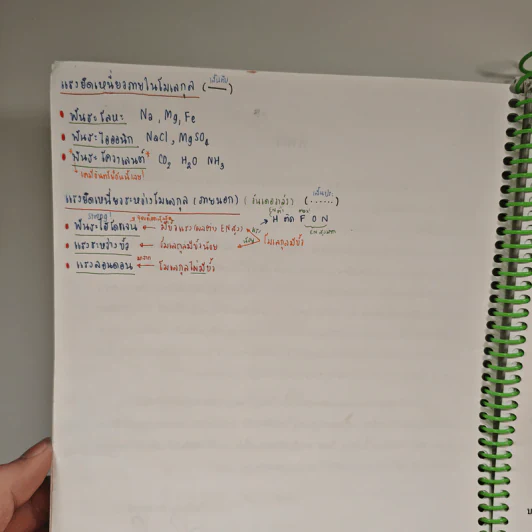 แรงยึดเหนี่ยวภายในโมเลกุล (—) เส้นทึบ
• พันธะโลหะ Na , Mg, Fe
• พันธะไอออนิก NaCl, MgSO₄
• พันธะโควาเลนต์ CO₂ H₂O NH₃
แรงยึดเหนี่ยวระหว่างโมเลกุล (ภายนอก) (......) เส้นประ
• พันธะไฮโดรเจน ← มีขั้วแรง → H ติด F O N
• แรงระหว่างขั้ว ← โมเลกุลมีขั้วน้อย โมเลกุลมีขั้ว
• แรงลอนดอน ← โมเลกุลไม่มีขั้ว